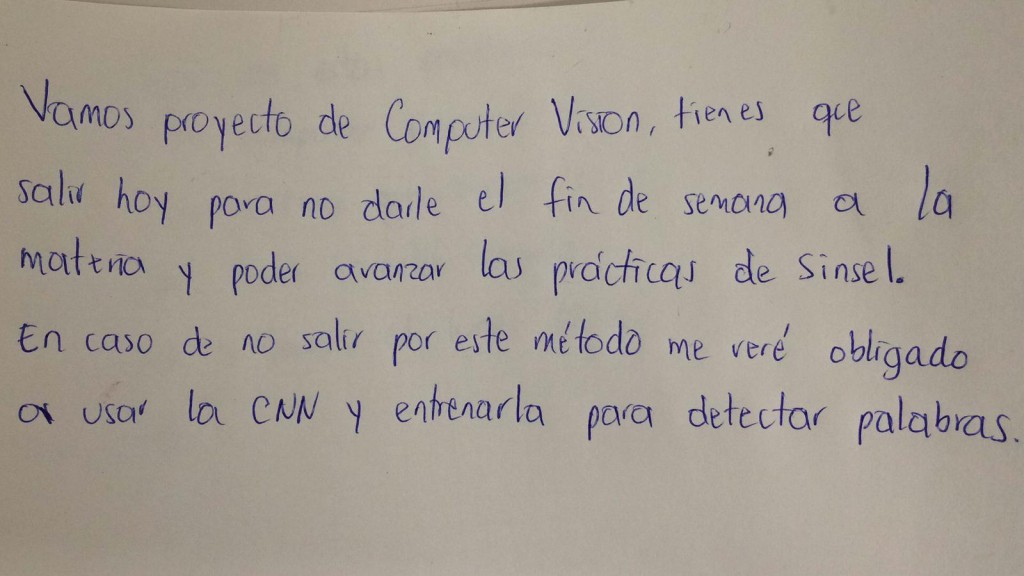 Vamos proyecto de Computer Vision, tienes que
salir hoy para no darle el fin de semana a la
materia y poder avanzar las prácticas de Sinsel.
En caso de no salir por este método me veré obligado
a usar la CNN y entrenarla para detectar palabras.